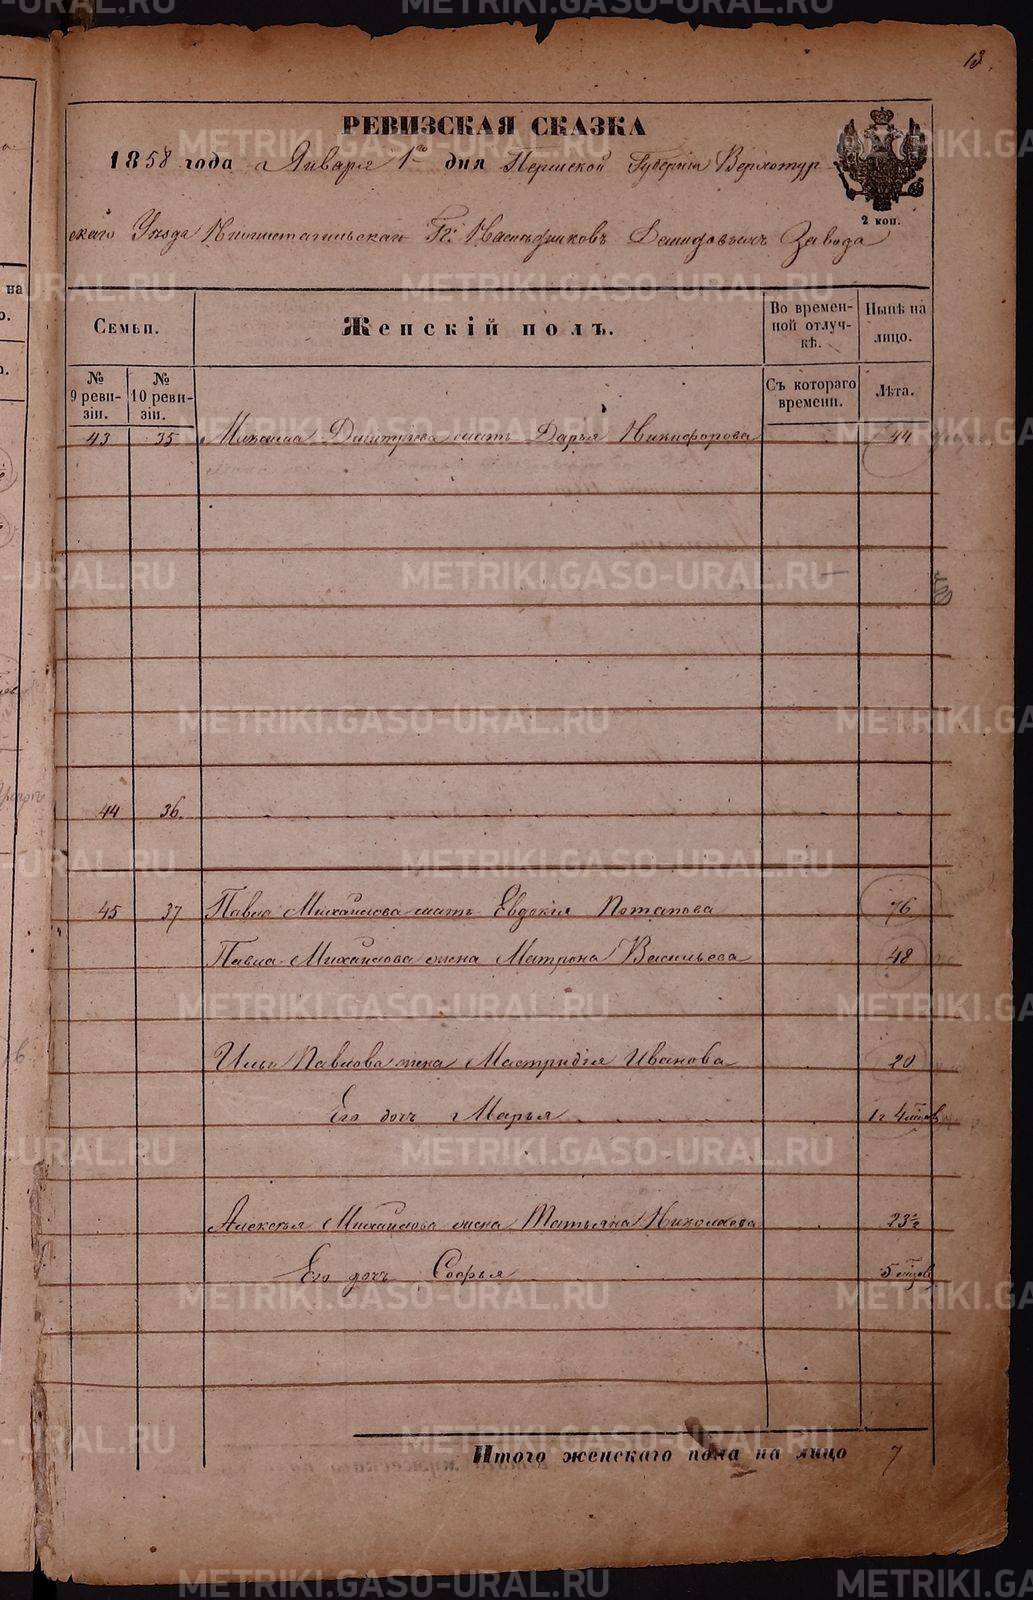 13.
РЕВИЗСКАЯ СКАЗКА
1858 года Января 1го дня Пермской Губернiи Верхотур
скаго Уѣзда Нижнетагильскаго Гг. Наслѣдниковъ Демидовыхъ Завода
2 коп.
Семьи. Женскiй полъ. Во времен-ной отлуч-кѣ. Нынѣ на лицо.
№ 9 реви-зiи. № 10 реви-зiи. Съ котораго времени. Лѣта.
43 35 Михаила Дмитрiева мать Дарья Никифорова 44
44 36.
45 37 Павла Михайлова мать Евдокiя Потапова 76
Павла Михайлова жена Матрона Васильева 48
Ильи Павлова жена Мастридiя Иванова 20
Его дочь Марья 1 г 4 мѣсяцов
Алексѣя Михайлова жена Татьяна Николаева 23½
Его дочь Софья 5 мѣсяцов
Итого женскаго пола на лицо 7
METRIKI.GASO-URAL.RU